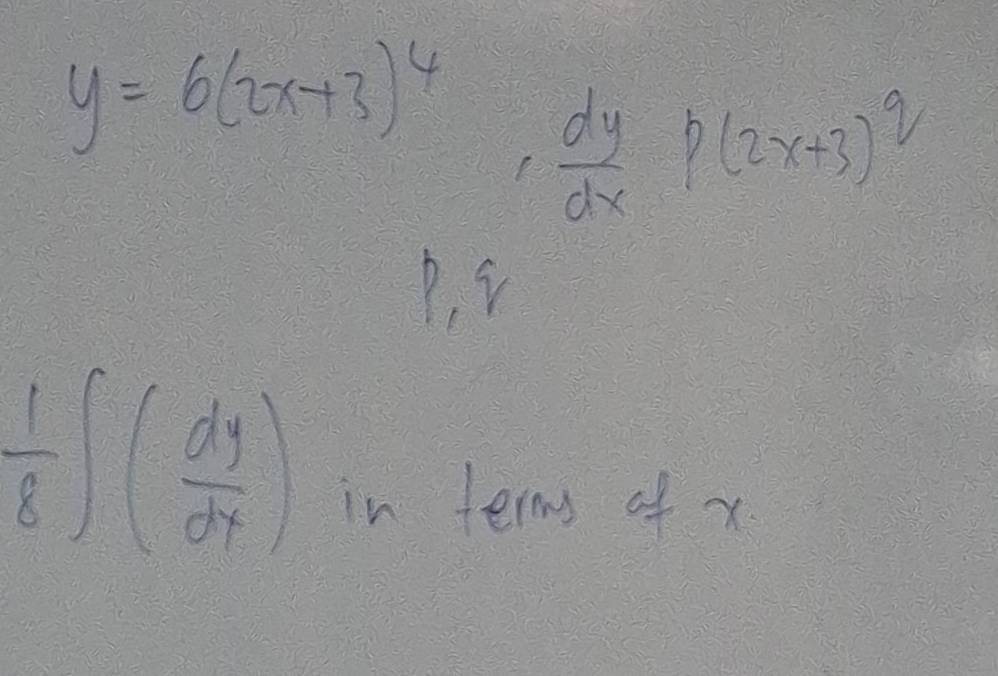 y = 6(2x+3)^4 , dy/dx p(2x+3)^q
p, q
1/8 ∫ (dy/dx) in terms of x.